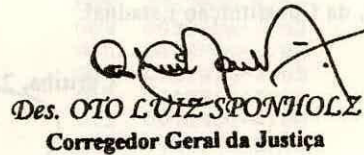 Des. OTO LUIZ SPONHOLZ
Corregedor Geral da Justiça